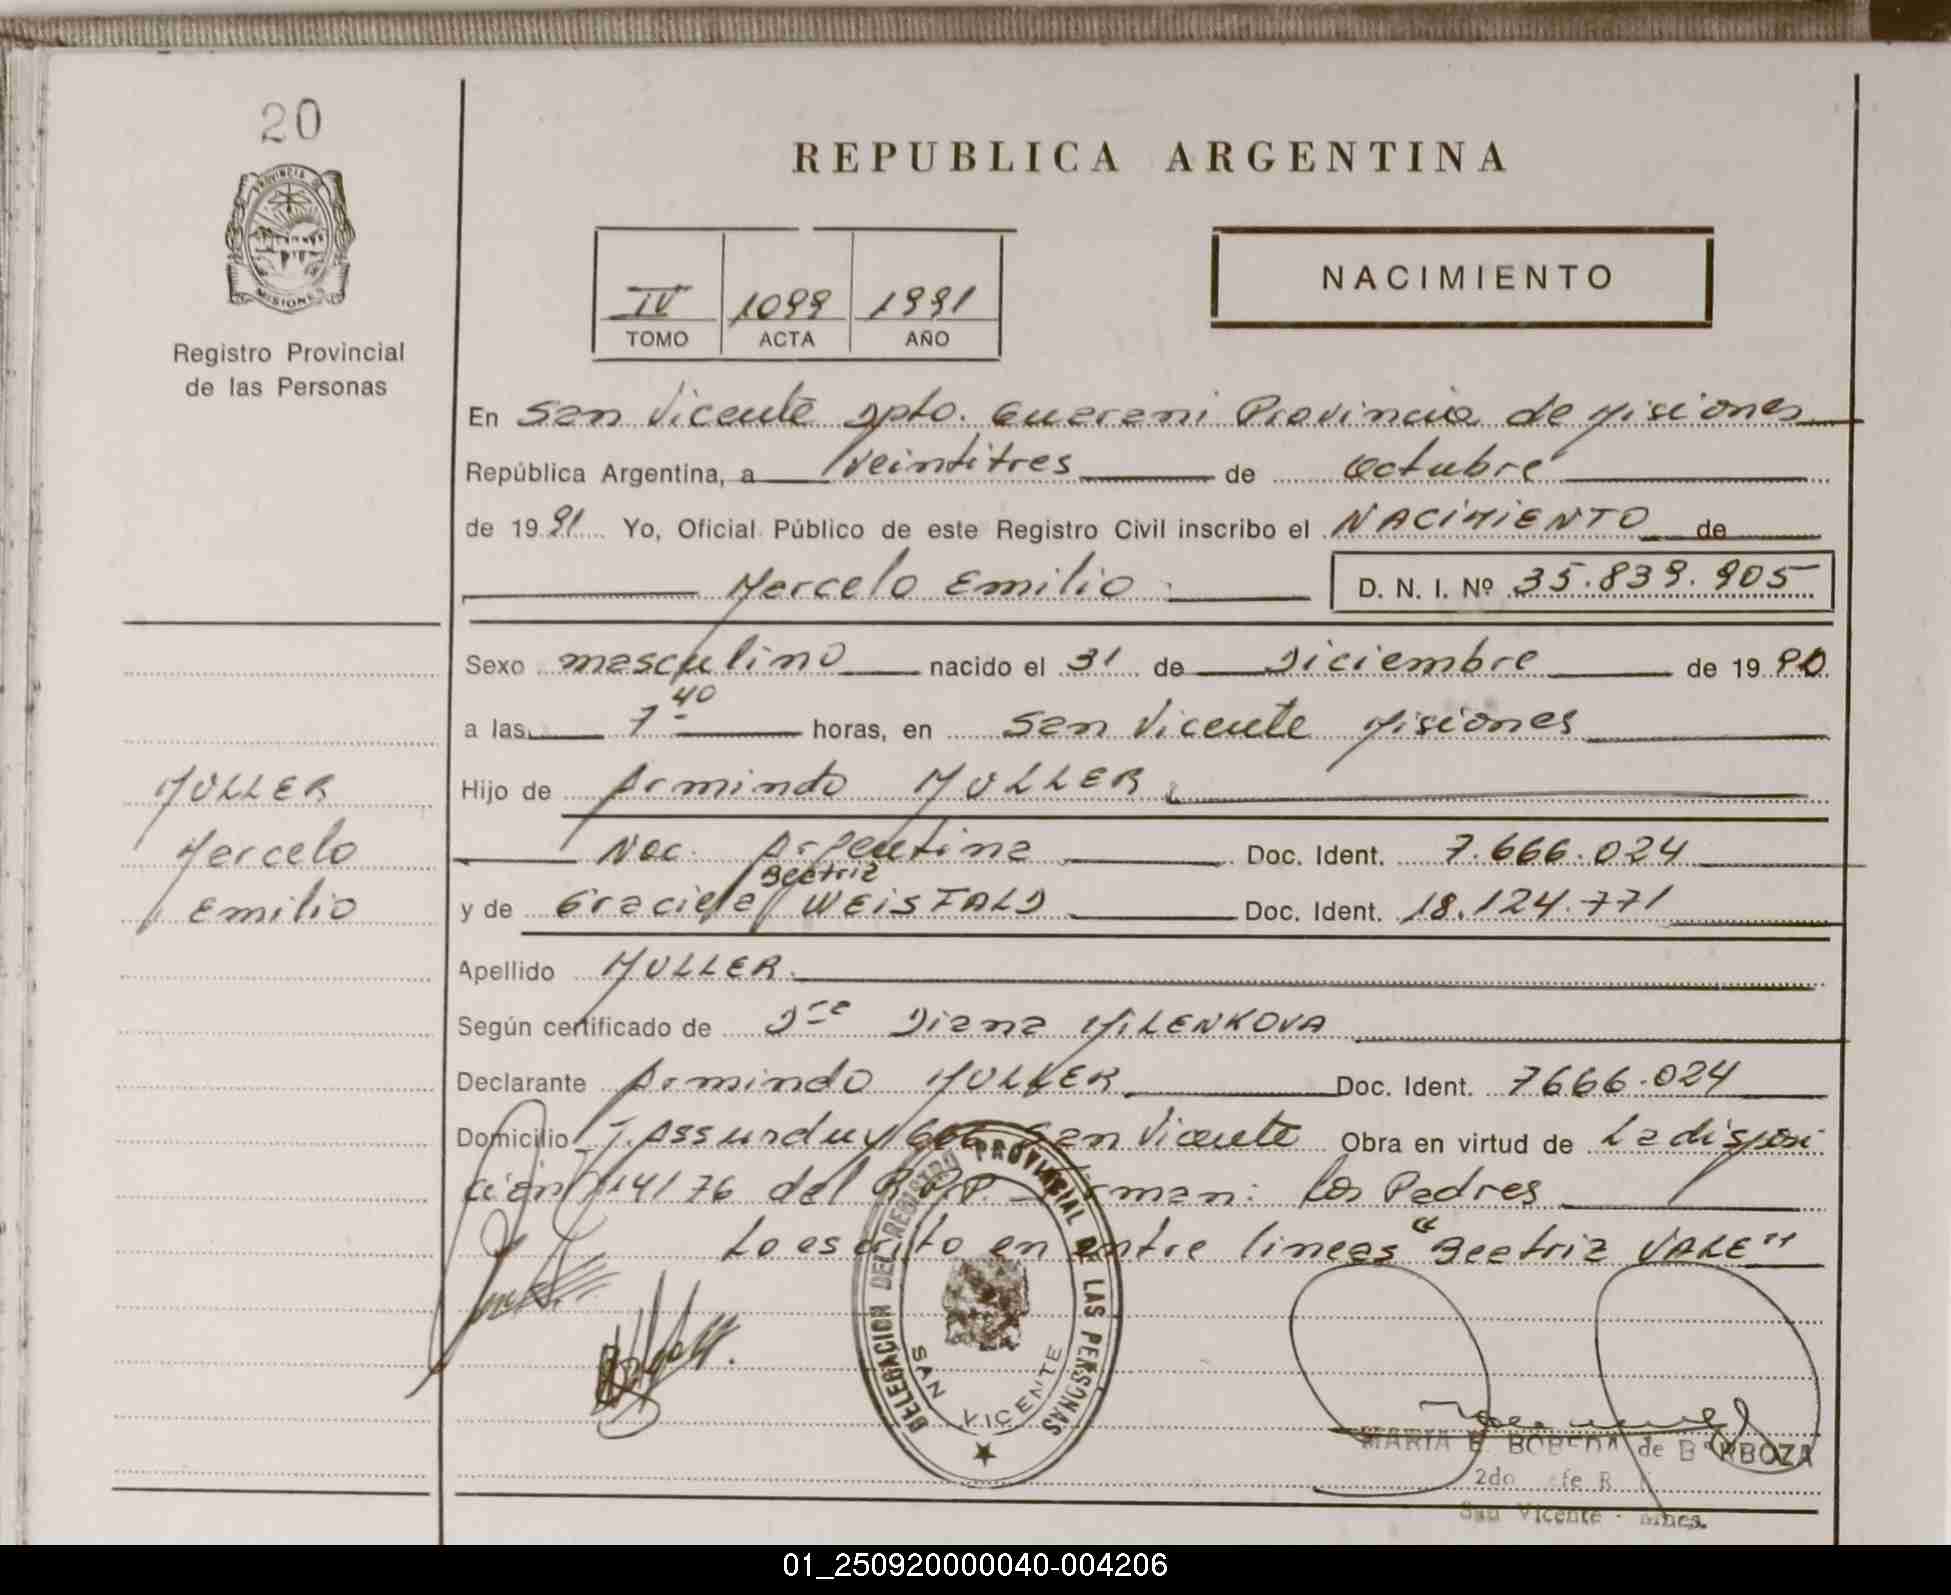 20
PROVINCIA DE
MISIONES
Registro Provincial
de las Personas
REPUBLICA ARGENTINA
IV 1099 1991
TOMO ACTA AÑO
NACIMIENTO
En San Vicente Dpto. Guarani Provincia de Misiones
República Argentina, a veintitres de octubre
de 1991 Yo, Oficial Público de este Registro Civil inscribo el NACIMIENTO de
Marcelo Emilio D. N. I. Nº 35.839.905
Sexo masculino nacido el 31 de Diciembre de 1990
a las 7 40 horas, en San Vicente Misiones
Hijo de Armindo MULLER
Nac. Argentina Doc. Ident. 7.666.024
Beatriz
y de Graciela WEISFALD Doc. Ident. 18.124.771
Apellido MULLER
Según certificado de Dra Diana MILENKOVA
Declarante Armindo MULLER Doc. Ident. 7666.024
Domicilio J. Assurduy San Vicente Obra en virtud de La disposi
ción 14/76 del R.P.P. Firman: los Padres
Lo escrito en entre lineas "Beatriz VALE"
MULLER
Marcelo
Emilio
DELEGACION DEL REGISTRO PROVINCIAL DE LAS PERSONAS
SAN VICENTE
MARIA E BOBEDA de BARBOZA
2do
San Vicente - Mnes.
01_250920000040-004206